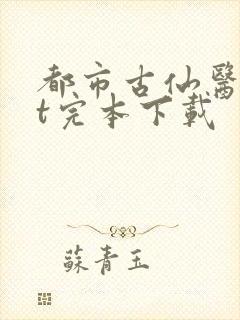 都市古仙醫
t完本下載
蘇青玉